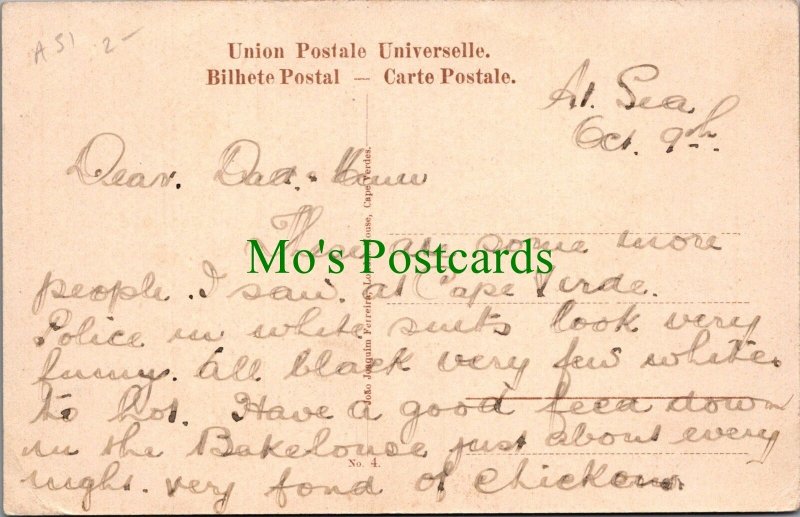 A51 2-
Union Postale Universelle.
Bilhete Postal — Carte Postale.
At. Sea
Oct. 9th
Dear. Dad.
João Joaquim Ferreira, House, Cape Verdes.
are some more
Mo's Postcards
people. I saw. at Cape Verde.
Police in white suits look very
funny. all black very few white.
to hot. Have a good feed down
in the Bakehouse just about every
night. very fond of chicken.
No. 4.